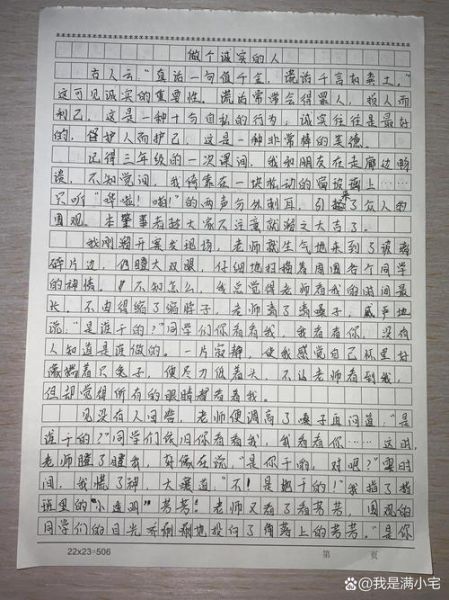 做个诚实的人
古人云“真话一句值千金，谎话千言如粪土。”
这可见诚实的重要性。谎话常常会得罪人，损人而
利己，这是一种十分自私的行为，诚实往往是最好
的，保护人而护己，这是一种非常棒的美德。
记得三年级的一次课间，我和朋友在走廊边畅
谈，不知觉间，我倚靠在一块松动的玻璃上……
只听“哗啦！啪！”的两声分外刺耳，引来了众人的
围观。本肇事者趁大家不注意就溜之大吉了。
我刚离开案发现场，老师就生气地来到了玻璃
碎片边，仍瞪大双眼，仔细地扫描着周围各个同学
的神情。不知怎么，我总觉得老师看我的时间最
长，不由得缩了缩脖子，老师清了清嗓子，威严地
说：“是谁干的？”同学们你看看我，我看看你，没有
人知道是谁做的。一片寂静，使我感觉自己怀里好
像揣着只兔子，便尽力低着头，不让老师看到我，
但却觉得所有的眼睛都看着我。
见没有人回答，老师便调高了嗓子再问道：“是
谁干的？”同学们依旧你看看我，我看看你……这时，
老师瞪了瞪我，好像在说，“是你干的，对吧？”霎时
间，我慌了神，大嚷道：“不！是她干的！”我指了指
班里的“小透明”芳芳！老师又看了看芳芳，围观的
同学们的目光齐刷刷地投向了角落上的芳芳。“是你
22x23=506
第 页
@我是满小宅